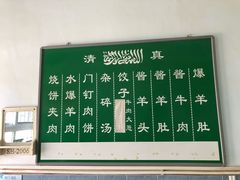 清 真
烧饼夹肉
水爆羊肉
门钉肉饼
杂碎汤
饺子
牛肉大葱
酱羊头
酱羊肚
酱牛肉
爆羊肚
SH-2006